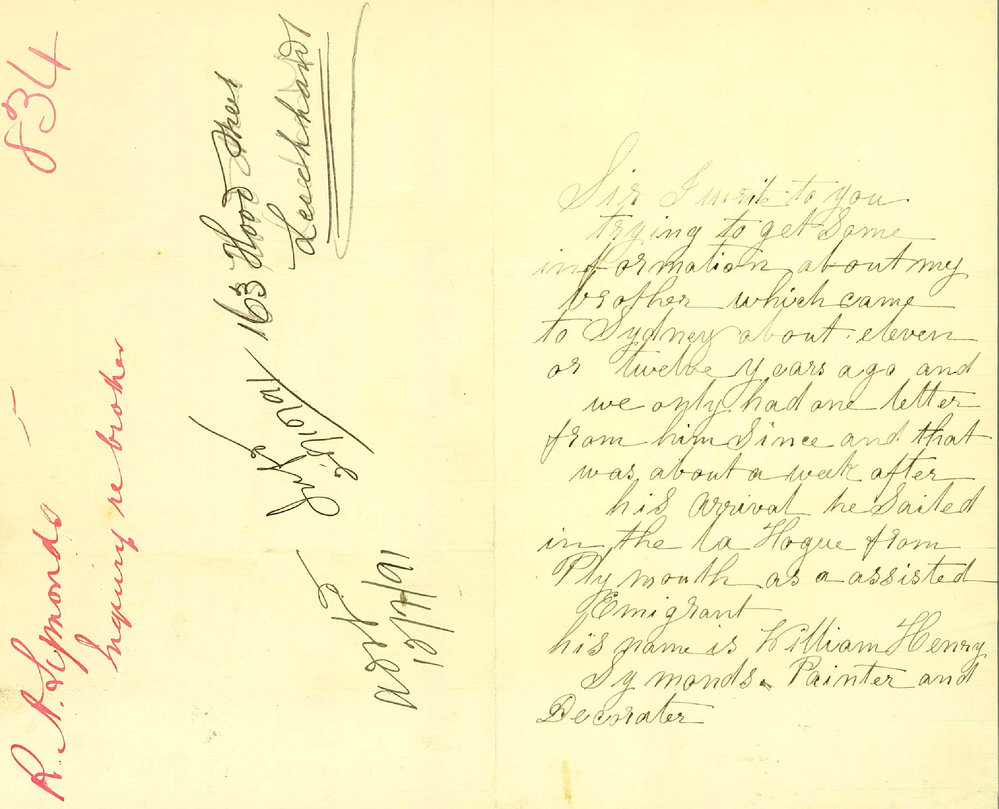 834
R. A. Symonds
Inquiry re brother
163 Flood Street
Leichhardt
24/10/91
12/7/91
Sir I writ to you
trying to get Some
information about my
brother which came
to Sydney about eleven
or twelve years ago and
we only had one letter
from him Since and that
was about a week after
his arrival he Sailed
in the la Hogue from
Plymouth as a assisted
Emigrant
his name is William Henry
Symonds. Painter and
Decorater